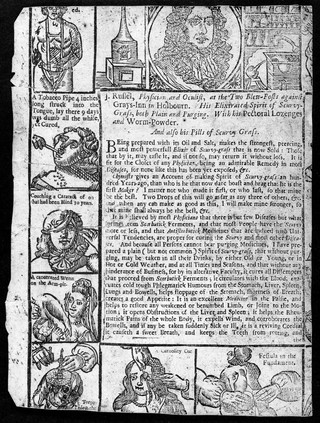 ed.
A Tobacco Pipe 4 inches
long struck into the
Tongue, lay there 9 days
was dumb all the while,
Cured.
Couching a Cataract of one
that had been Blind 30 years.
A cancerated Wenn
on the Arm-pit.
J. Russel, Physician and Oculist, at the Two Blew-Posts against
Grays-Inn in Holbourn. His Elixirated Spirit of Scurvy-
Grass, both Plain and Purging. With his Pectoral Lozenges
and Worm-Powder.
And also his Pills of Scurvy Grass.
BEing prepared with its Oil and Salt, makes the strongest, piercing,
and most powerful Elixir of Scurvy-grass that is now Sold: Those
that by it, may taste it, and if not so, may return it without loss. It is
fit for the Closet of any Physician, being an admirable Remedy in most
Diseases, for none like this has been yet exposed, &c.
dred Years ago, than who is he that now dare boast and brag that he is the
first Maker? I matter not who made it first, or who last, so that mine
be the best. Two Drops of this will go as far as any three of others, &c.
nay, when any can make as good as this, I will make mine stronger, so
that mine shall always be the best, &c.
It is asserted by most Physicians that there is but few Diseases but what
springs from Scorbutick Ferments, and that most People have the Scurvy
more or less, and that Antiscorbutick Medicines that are besides
tural Tendencies, are proper for curing the Scurvy and most other Disea-
ses. And because all Persons cannot bear purging Medicines, I have pre-
pared a plain (but not common) Spirit of Scurvy-grass, that without pur-
ging, may be taken in all their Drink, by either Old or Young, or in
Hot or Cold Weather, and at all Times and Seasons, and that without any
hinderance of Business, for by its abstersive Faculty, it cures all Distempers
that proceed from Scorbutick Ferments; it circulates with the Blood, exte-
nuates cold tough Phlegmatick Humours from the Stomach, Liver, Spleen,
Lungs and Bowells, helps stoppage of the Stomach, shortness of Breath,
creates a good Appetite: Is an excellent Medicine in the Palsie, and
helps to restore any weakened or benumbed Limb, or Joint to the Mo-
tion; it opens Obstructions of the Liver and Spleen; it helps the Rheu-
matick Pains of the whole Body, it expells Wind, and corroborates the
Bowells, and if any be taken suddenly Sick or Ill, it is a reviving Cordial
it causeth a sweet Breath, and keeps the Teeth from rotting, and
the
Cut
Fistula in the
Fundament.